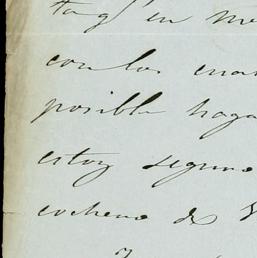 en me
con los cua
posible haga
estoy seguro
cochero de